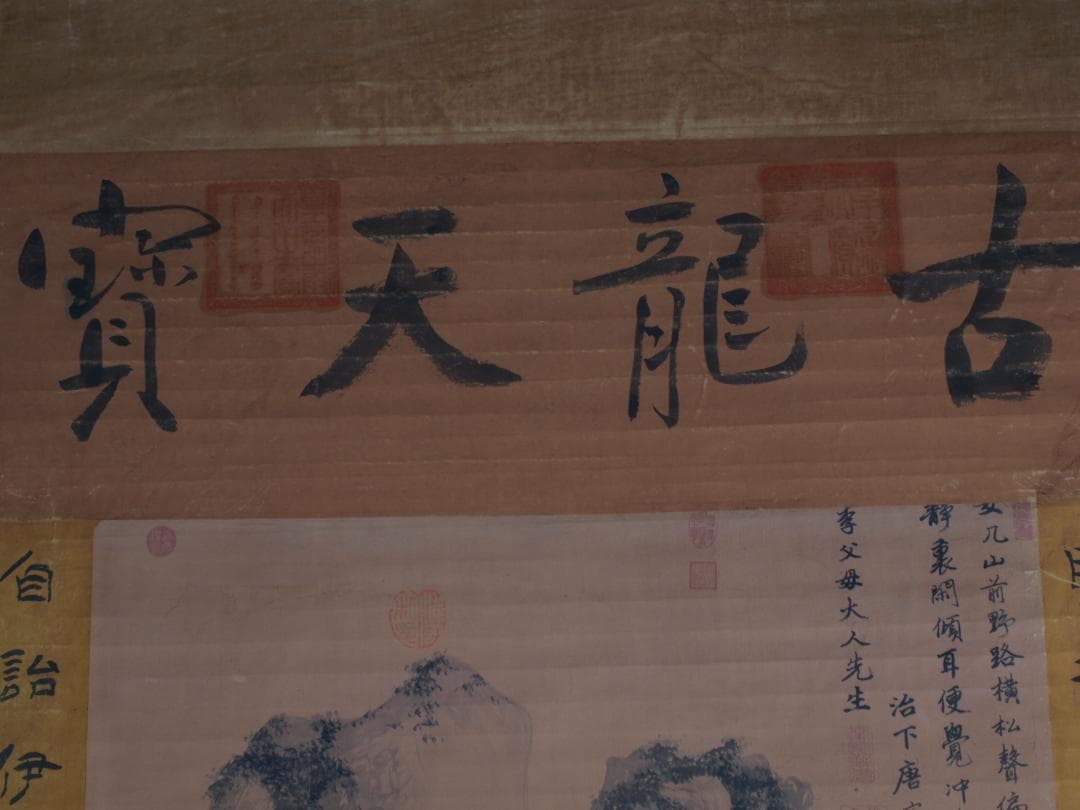 古龍天寶
女几山前野路橫松聲
靜裏閑傾耳便覺冲
李父母大人先生
治下唐
自詒伊